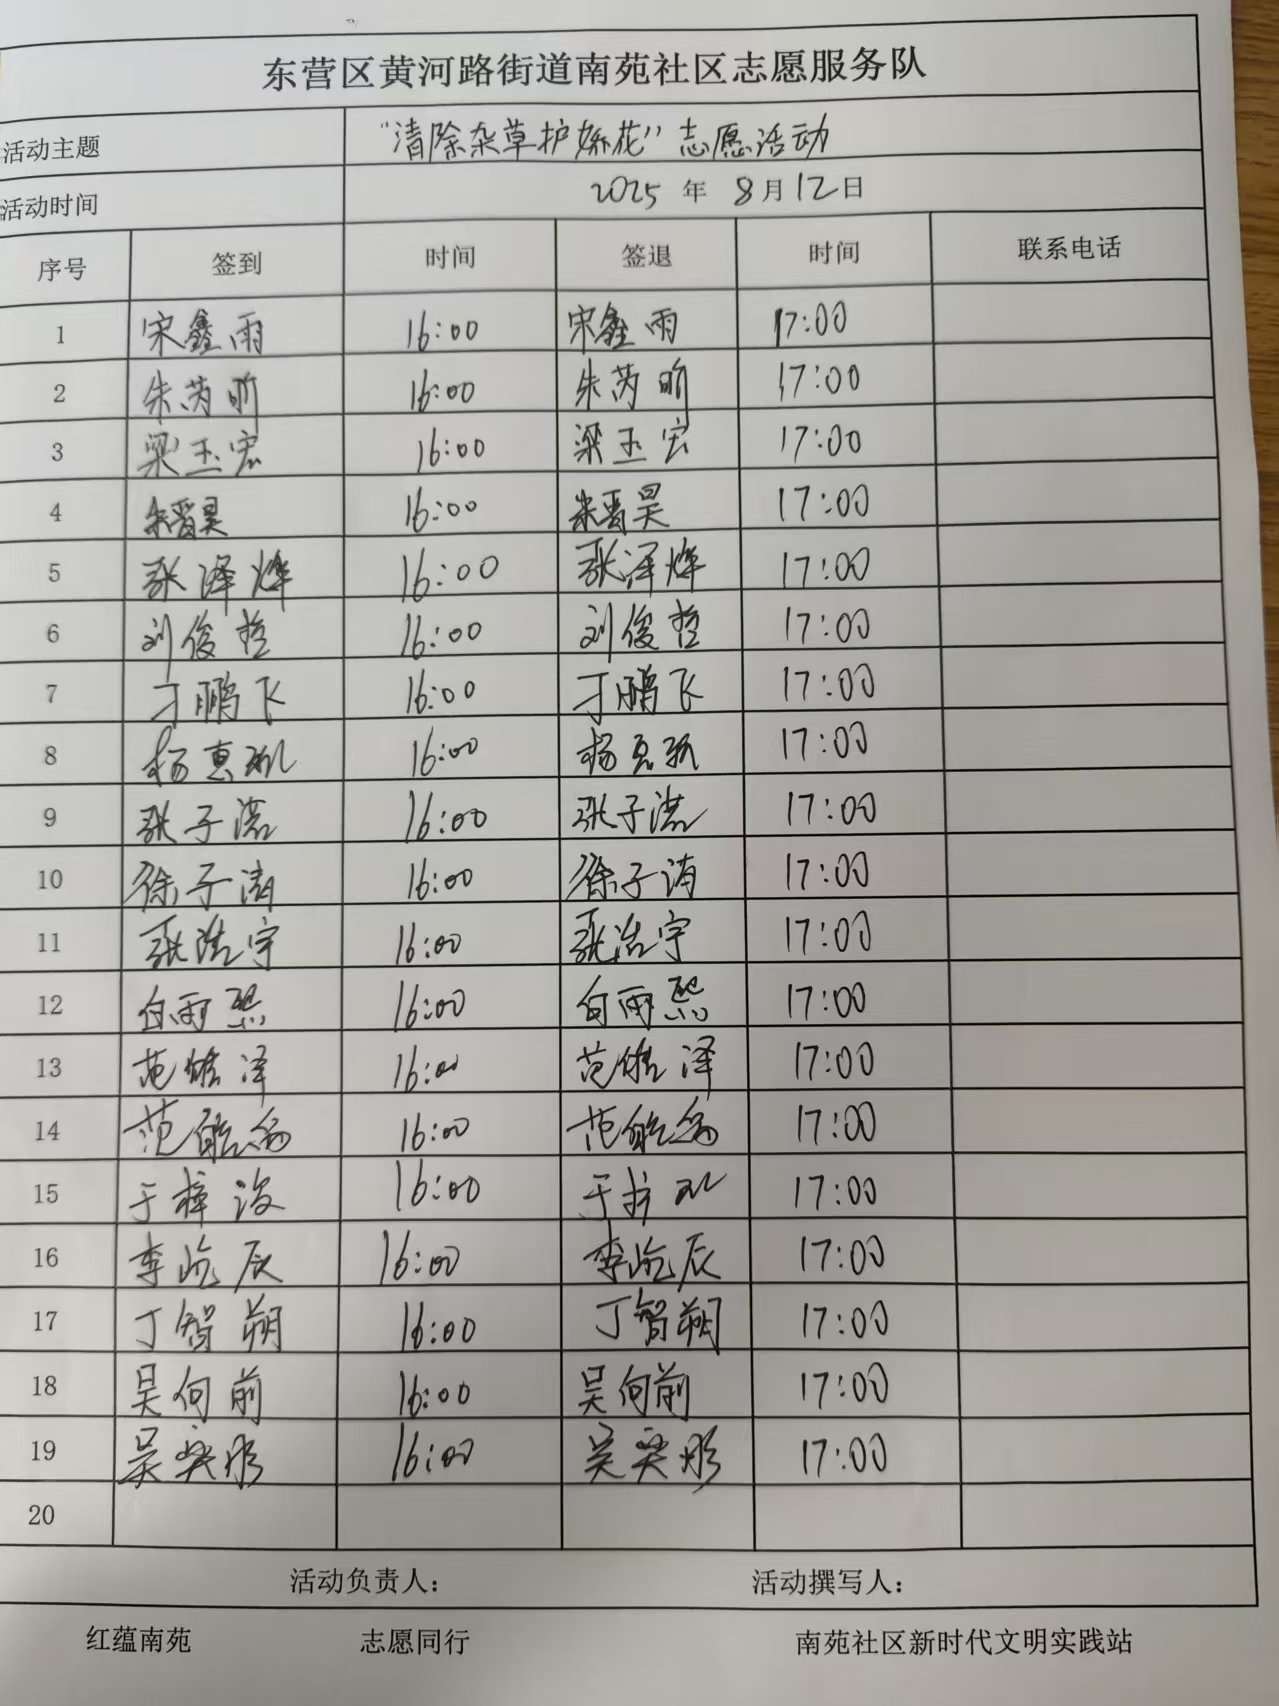 东营区黄河路街道南苑社区志愿服务队
活动主题 "清除杂草护娇花"志愿活动
活动时间 2025 年 8月12日
序号 签到 时间 签退 时间 联系电话
1 宋鑫雨 16:00 宋鑫雨 17:00
2 朱芮昕 16:00 朱芮昕 17:00
3 梁玉宏 16:00 梁玉宏 17:00
4 朱晋昊 16:00 朱晋昊 17:00
5 张泽烨 16:00 张泽烨 17:00
6 刘俊哲 16:00 刘俊哲 17:00
7 刁鹏飞 16:00 刁鹏飞 17:00
8 杨惠 16:00 杨惠 17:00
9 张子浩 16:00 张子浩 17:00
10 徐子涛 16:00 徐子涛 17:00
11 张浩宇 16:00 张浩宇 17:00
12 白雨熙 16:00 白雨熙 17:00
13 范皓泽 16:00 范皓泽 17:00
14 范皓 16:00 范皓 17:00
15 于梓 16:00 于 17:00
16 李屹辰 16:00 李屹辰 17:00
17 丁智朔 16:00 丁智朔 17:00
18 吴向前 16:00 吴向前 17:00
19 吴奕彤 16:00 吴奕彤 17:00
20
活动负责人: 活动撰写人:
红蕴南苑 志愿同行 南苑社区新时代文明实践站